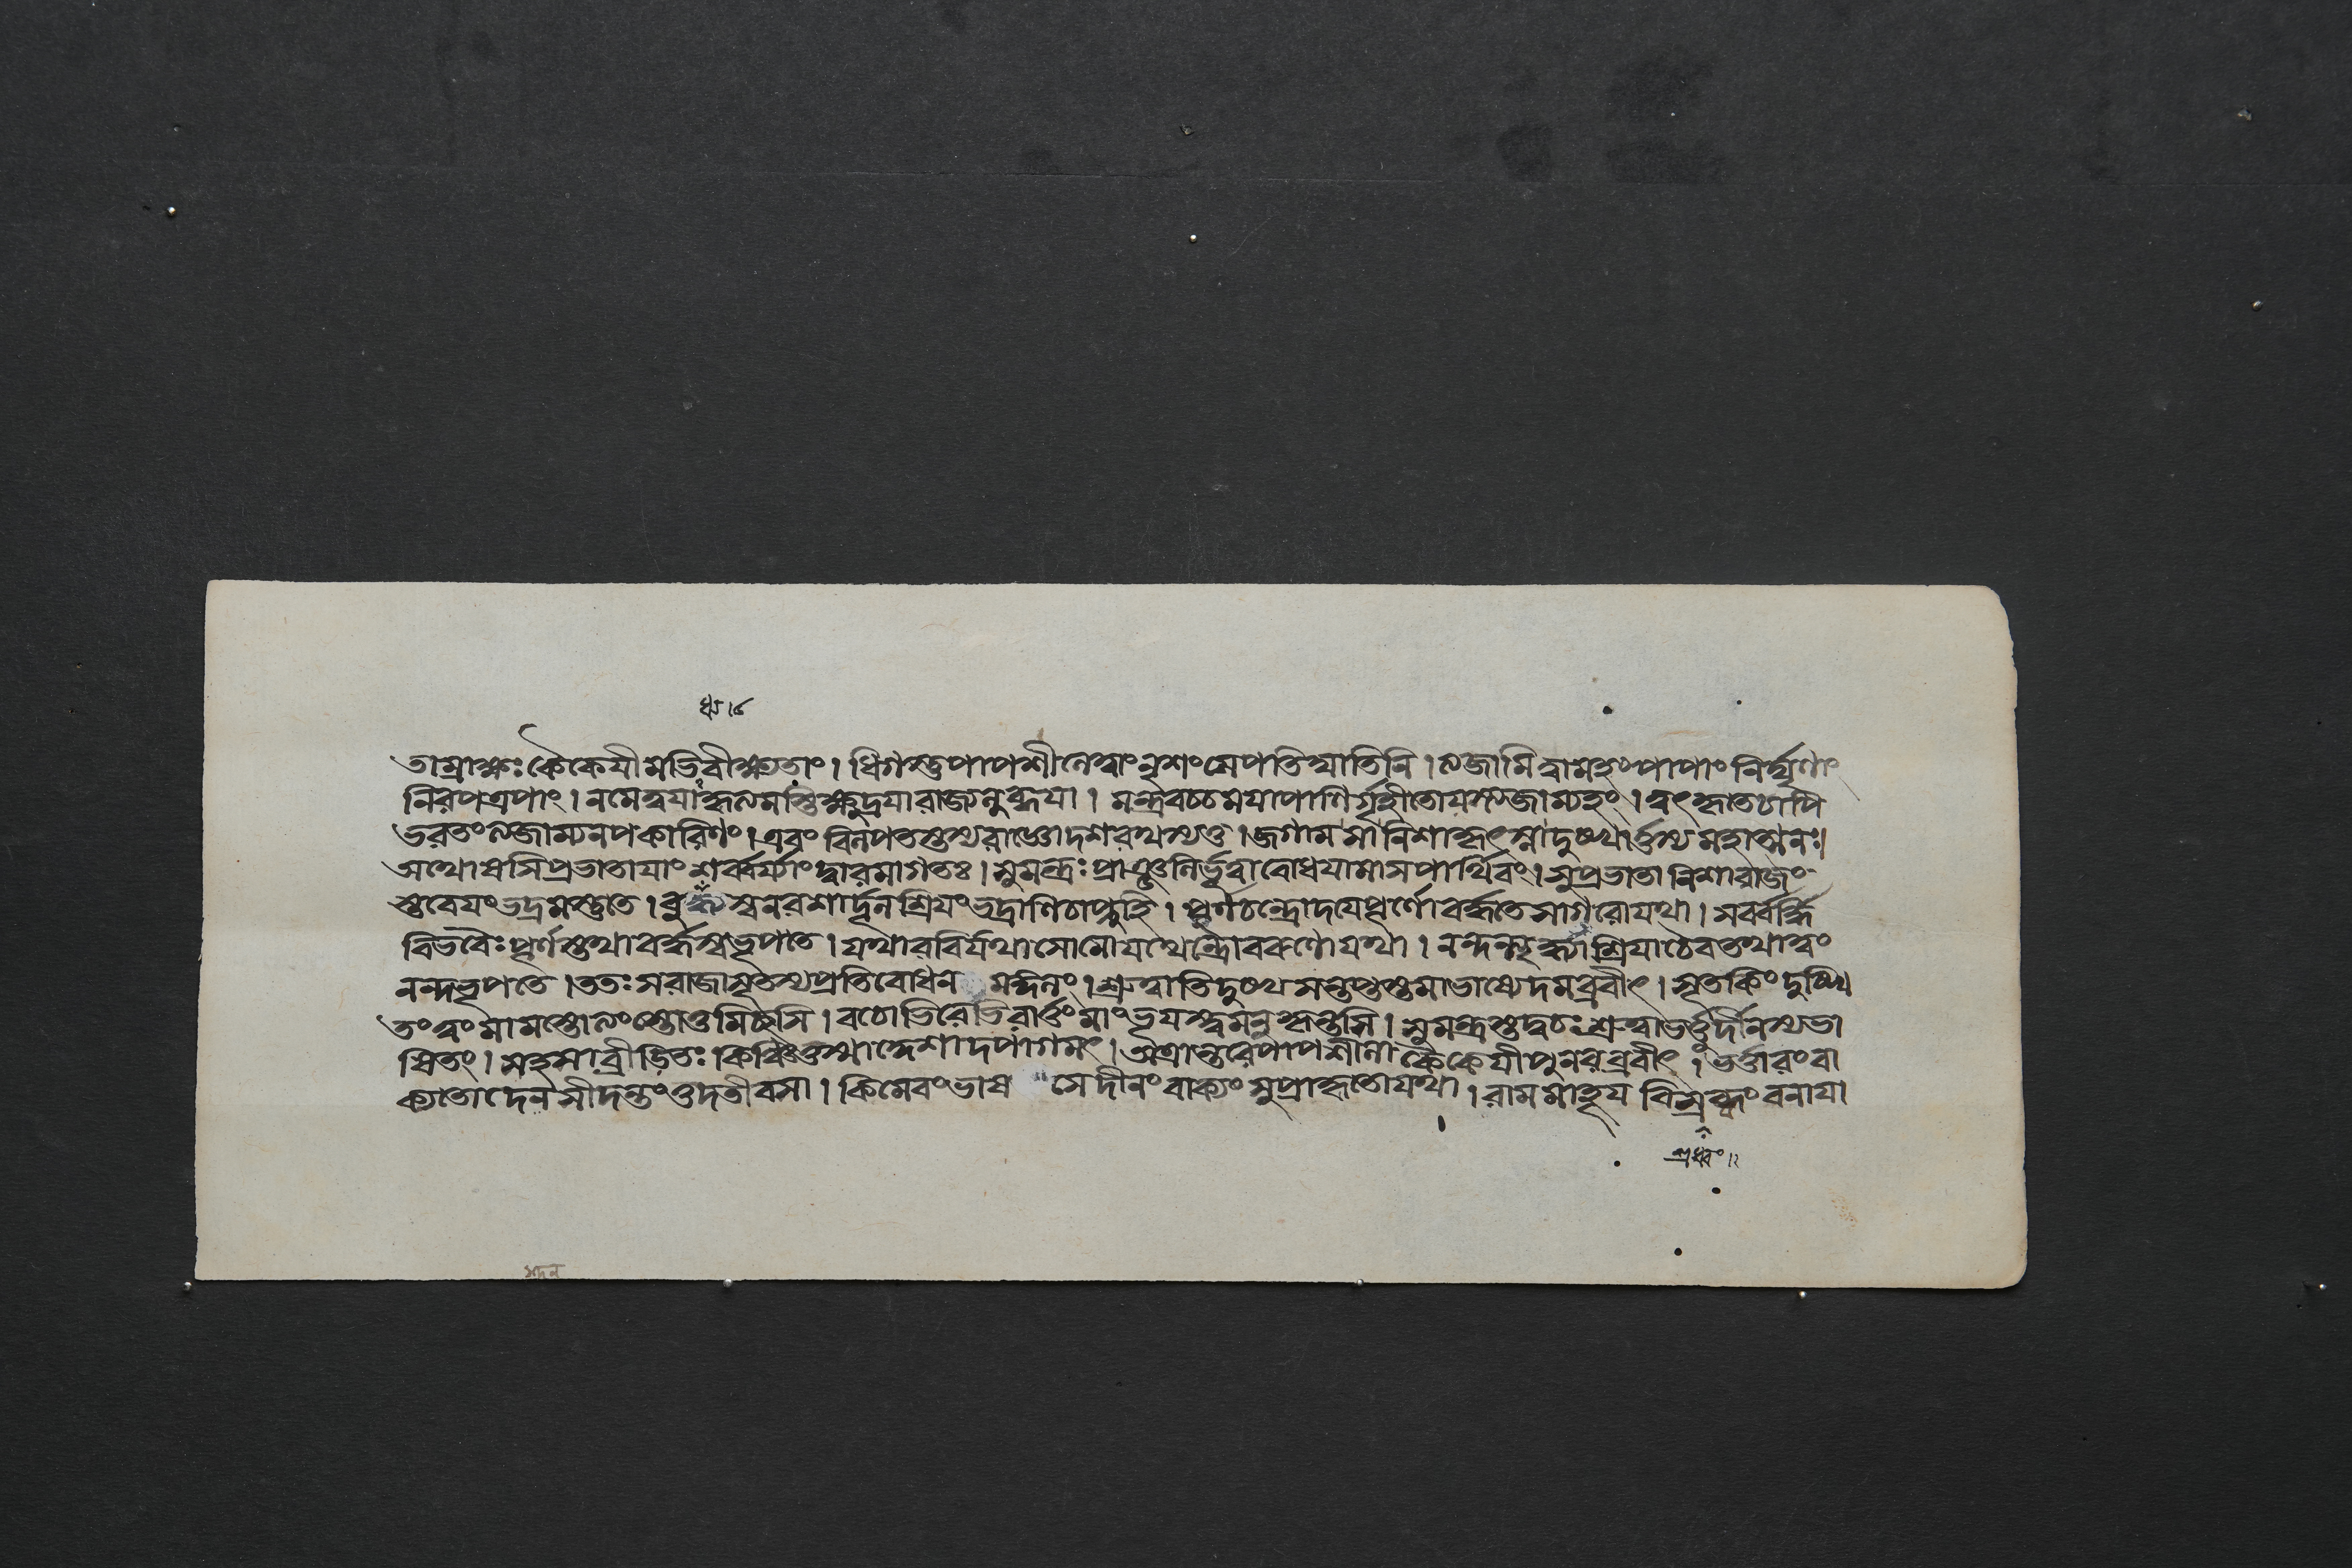 ধ্য।৪
তাম্রাক্ষঃ কৈকেযীমভিবীক্ষ্যতাং। ধিগস্তুপাপশীলেত্বাং নৃশংসেপতিঘাতিনি। ত্যজামিত্বামহং পাপাং নির্ঘৃণাং
নিরপত্রপাং। নমেত্বযা কৃত্যমস্তি ক্ষুদ্রযারাজ্যলুব্ধযা। মন্ত্রবচ্চমযাপাণির্গৃহীতোযস্ত্যজাম্যহং। ত্বৎকৃতেচাপি
ভরতংত্যজাম্যনপকারিণং। এবং বিলপতস্তস্যরাজ্ঞোদশরথস্যতু। জগামসানিশাকৃৎস্নাদুঃখার্ত্তস্য মহাত্মনঃ।
অথোষসিপ্রভাতাযাং শর্ব্বর্য্যাং দ্বারমাগতঃ। সুমন্ত্রঃ প্রাঞ্জলির্ভূত্বাবোধযামাসপার্থিবং। সুপ্রভাতা নিশারাজং
স্তবেযংভদ্রমস্তুতে। বুধ্যস্বনরশার্দ্দূল শ্রিযংভদ্রাণিচাপ্নুহি। পূর্ণচন্দ্রোদযেপূর্ণোবর্দ্ধতেসাগরোযথা। সর্ব্বর্দ্ধি
বিভবৈঃ পূর্ণস্তথাবর্দ্ধস্বভূপতে। যথারবির্যথাসোমোযথেন্দ্রোবরুণোযথা। নন্দন্ত্যৃদ্ধ্যাশ্রিযাচৈবতথাত্বং
নন্দভূপতে। ততঃ সরাজাসূতস্যপ্রতিবোধন মঙ্গলং। শ্রুত্বাতিদুঃখসন্তপ্তস্তমাভাষ্যেদমব্রবীৎ। সূতকিং দুঃখি
তংত্বং মামস্তোত্যংস্তোতুমিচ্ছসি। বচোভিরেভিরার্ত্তং মাংভূযস্ত্বমনুকৃন্তসি। সুমন্ত্রস্তদ্বচঃ শ্রুত্বাভর্ত্তুর্দীনস্যভা
ষিতং। সহসাব্রীড়িতঃ কিঞ্চিত্তস্মাদ্দেশাদপাগমৎ। অত্রান্তরেপাপশীলা কৈকেযীপুনরব্রবীৎ। ভর্ত্তারংবা
ক্যতোদেনসীদন্তংতুদতীবসা। কিমেবংভাষ সেদীনং বাক্যং সুপ্রাকৃতোযথা। রামমাহূয বিস্রব্ধং বনাযা